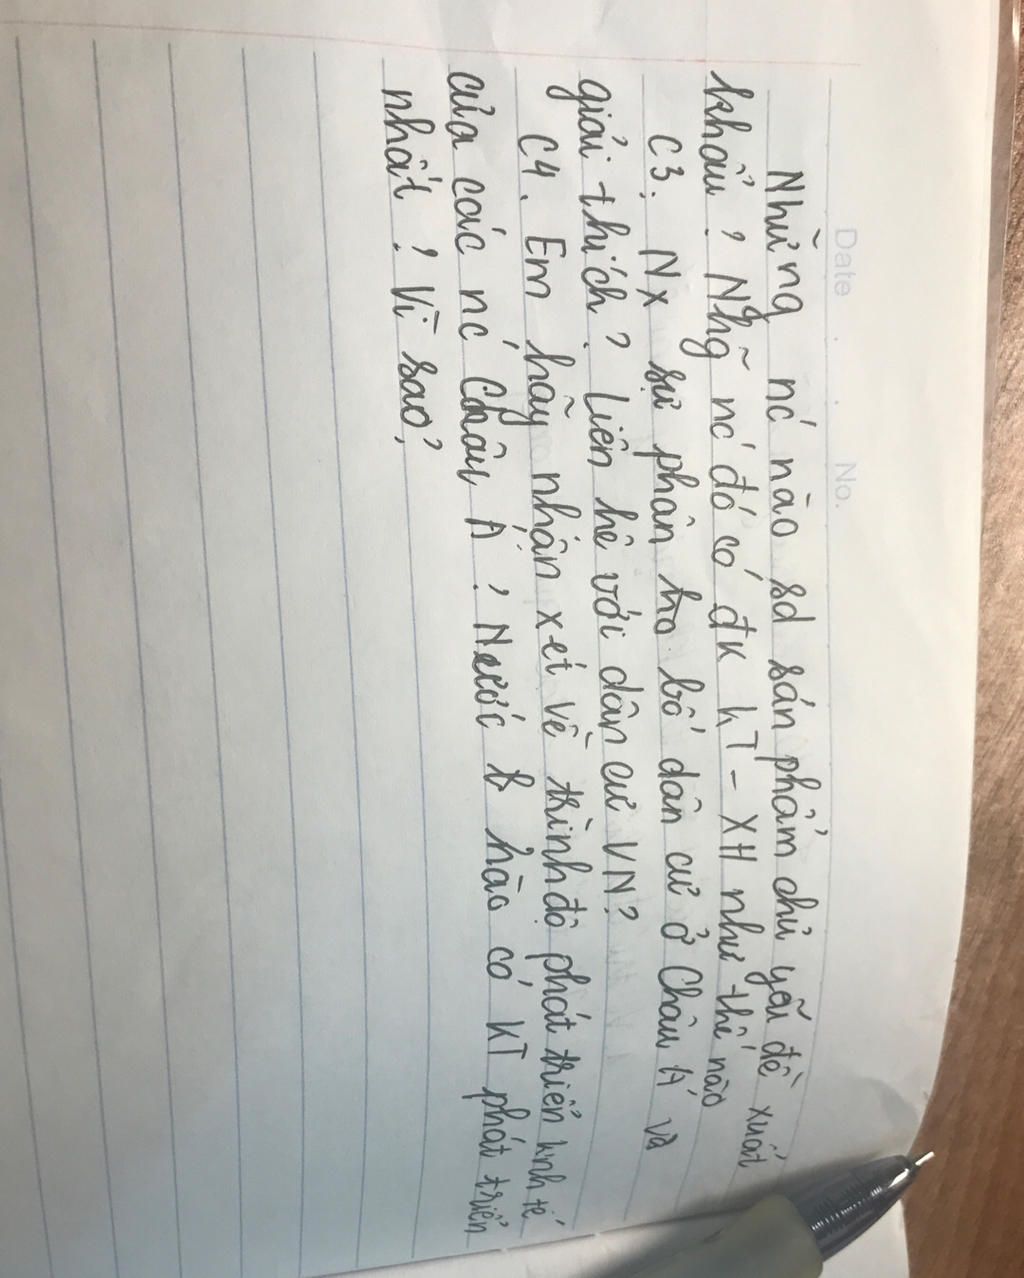 Date . . No.
Những nć nào sd sản phẩm chủ yếu để xuất
khẩu? Nhg~ nć đó có đk KT - XH như thế nào
C3. Nx sự phân bố dân cư ở Châu Á và
giải thích? Liên hệ với dân cư VN?
C4. Em hãy nhận xét về trình độ phát triển kinh tế
của các nć Châu Á? Nước nào có KT phát triển
nhất? Vì sao?